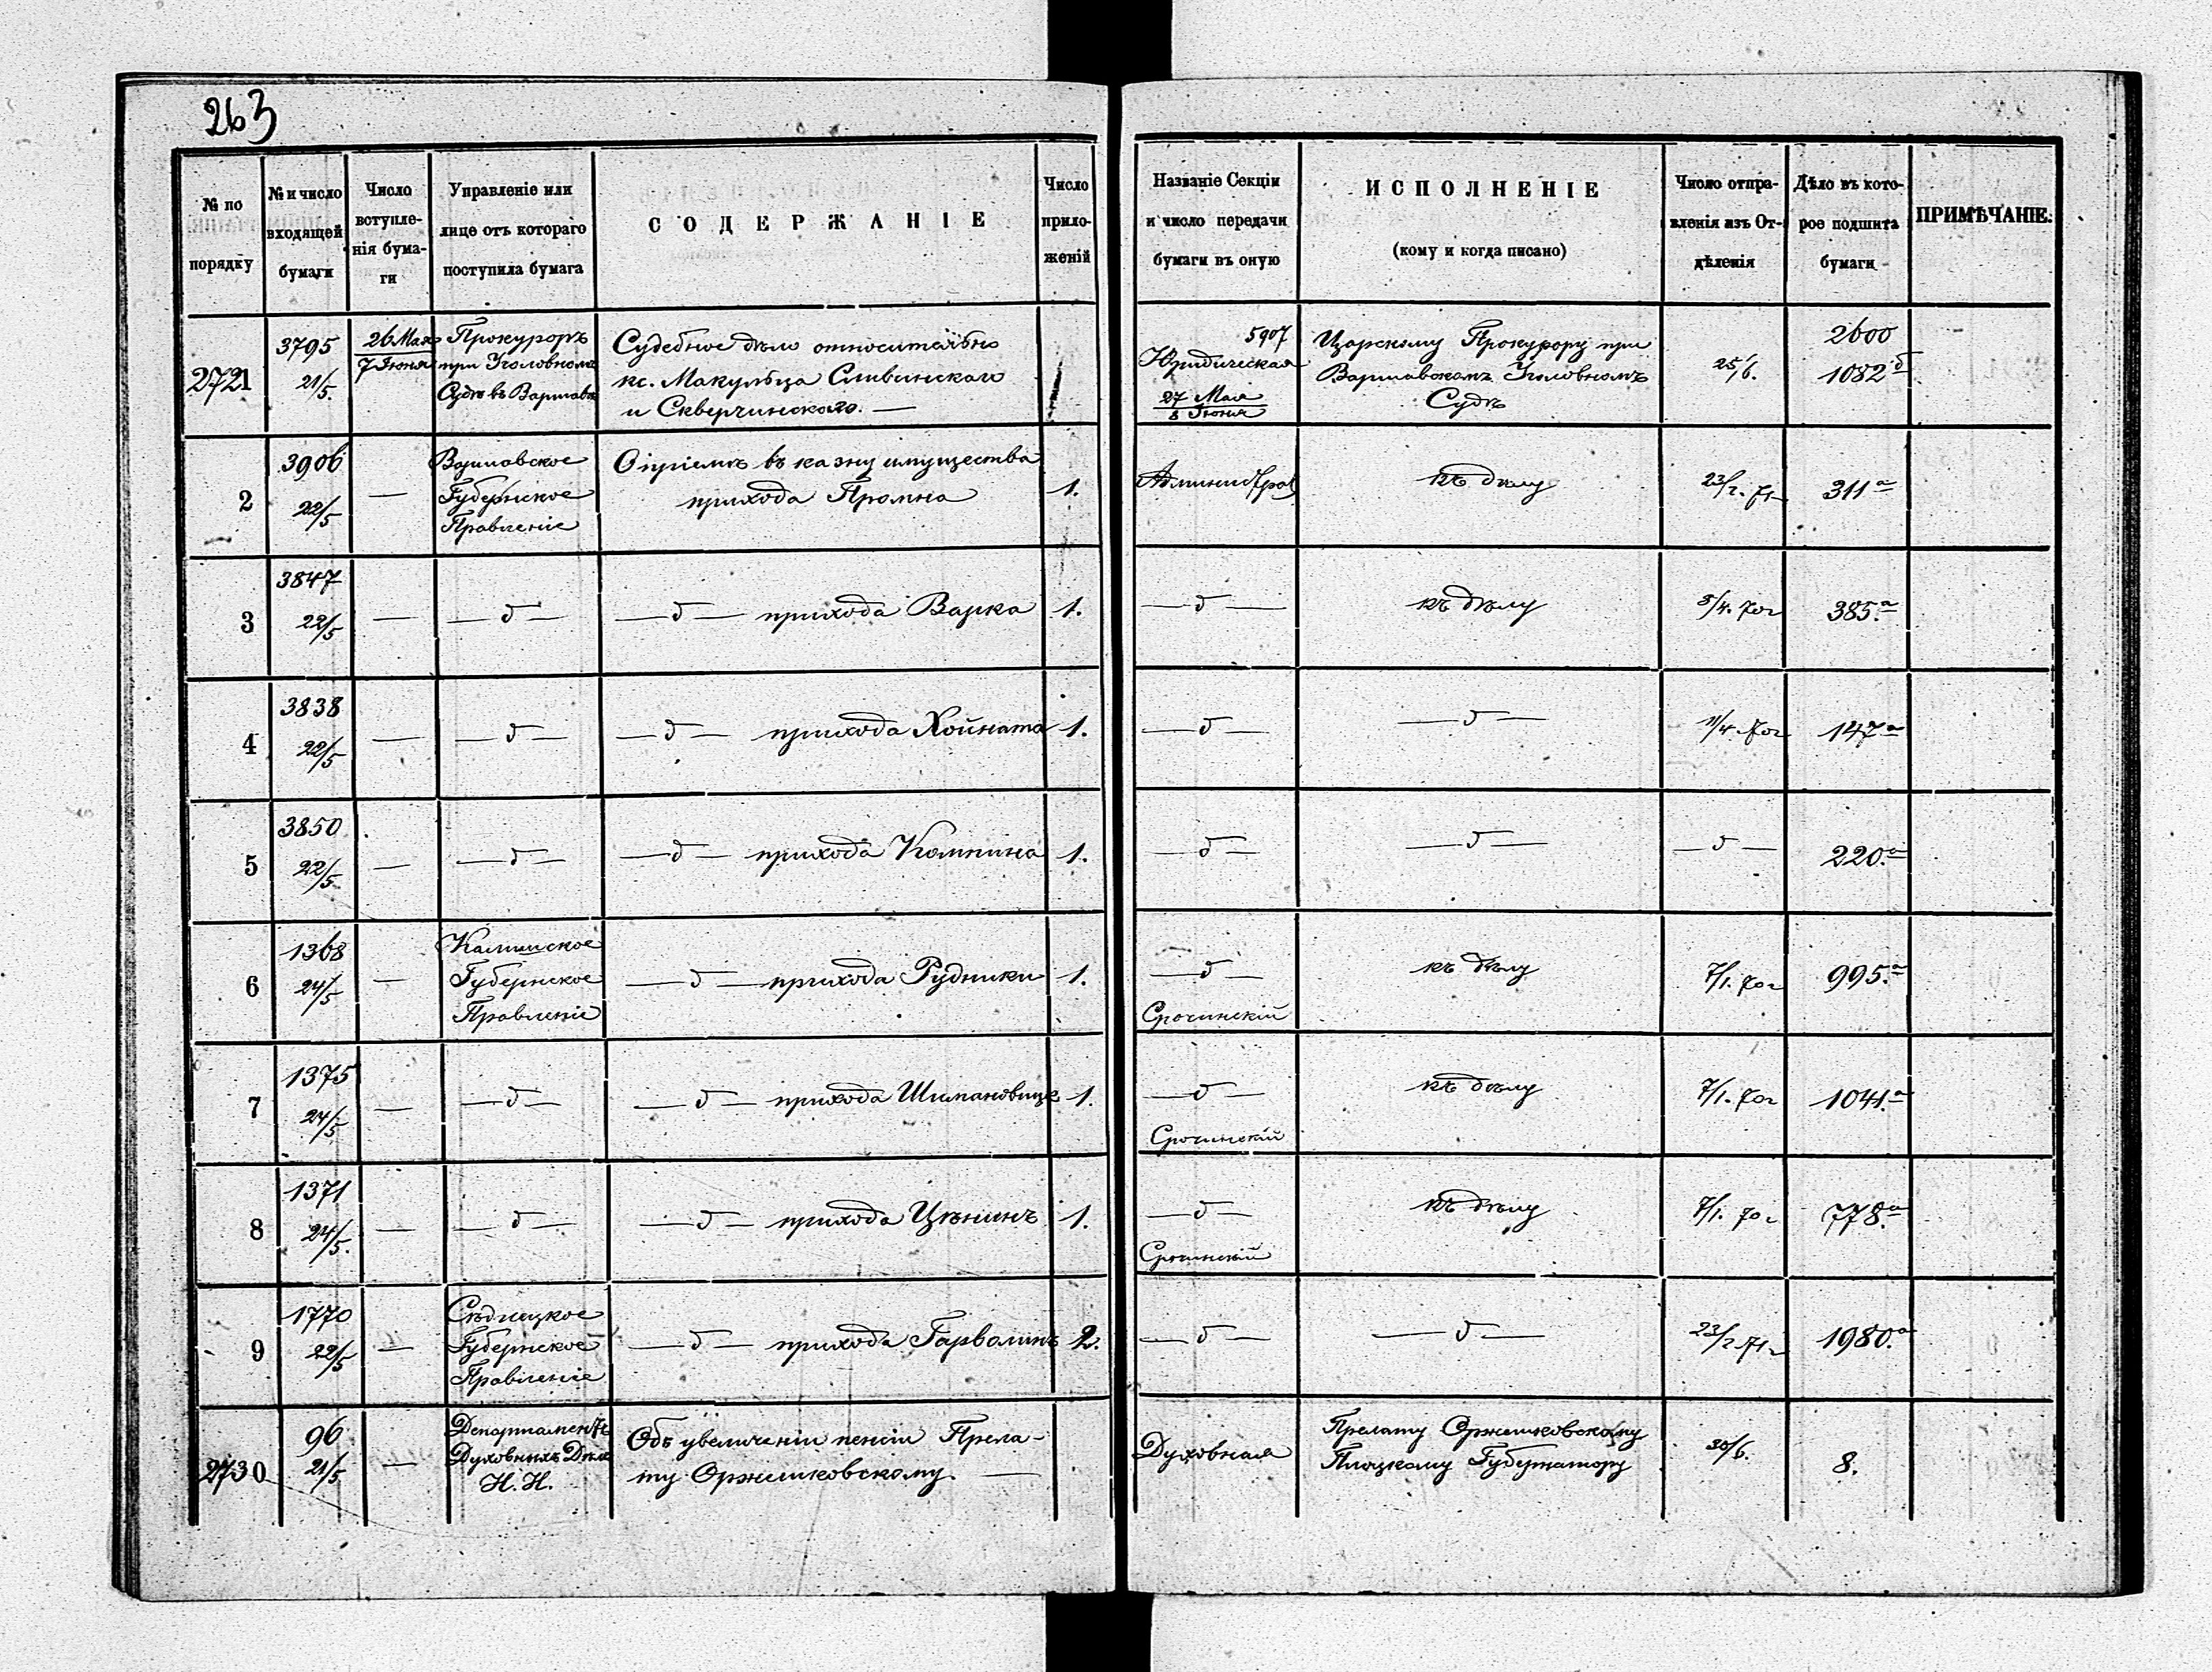 263
№ по порядку
№ и число входящей бумаги
Число вступле-
нія бума-
ги
Управленіе или
лице отъ котораго
поступила бумага
СОДЕРЖАНІЕ
Число
прило-
женій
Названіе Секціи
и число передачи
бумаги въ оную
ИСПОЛНЕНІЕ
(кому и когда писано)
Число отпра-
вленія изъ От-
дѣленія
Дѣло въ кото-
рое подшита
бумаги
ПРИМѢЧАНІЕ.
2721
3795
21/5.
26 Мая
7 Іюня
Прокуроръ
при Уголовномъ
Судѣ въ Варшавѣ
Судебное дѣло относительно
кс. Макульца Сливинскаго
и Скверчинскаго. —
5907
Юридическая
27 Мая
8 Іюня
Царскому Прокурору при
Варшавскомъ Уголовномъ
Судѣ
25/6.
2600
1082 б
2
3906
22/5
—
Варшавское
Губернское
Правленіе
въ казну имущества
прихода Промна
1.
къ дѣлу
23/2. 71
311 а
3
3847
22/5
—
— д —
— д — прихода Варка
1.
— д —
къ дѣлу
3/4. 70г
385. а
4
3838
22/5
—
— д —
— д — прихода Хойната
1.
— д —
— д —
11/4 70г
147 а
5
3850
22/5
—
— д —
— д — прихода Компина
1.
— д —
— д —
— д —
220. а
6
1368
24/5
—
Калишское
Губернское
Правленіе
— д — прихода Рудники
1.
— д —
Срочинскій
къ дѣлу
7/1. 70г
995. а
7
1375
24/5
—
— д —
— д — прихода Шимановице
1.
— д —
Срочинскій
къ дѣлу
7/1. 70г
1041. а
8
1371
24/5.
—
— д —
— д — прихода Цѣнинъ
1.
— д —
Срочинскій
къ дѣлу
7/1. 70г
778. а
9
1770
22/5
—
Сѣдлецкое
Губернское
Правленіе
— д — прихода Гарволинъ
2.
— д —
— д —
23/2 71г
1980. а
2730
96
21/5
—
Департаментъ
Духовныхъ Дѣлъ
И. И.
Объ увеличеніи пенсіи Прела-
ту Оржешковскому. —
Духовная
Прелату Оржешковскому
Плоцкому Губернатору
30/6.
8.